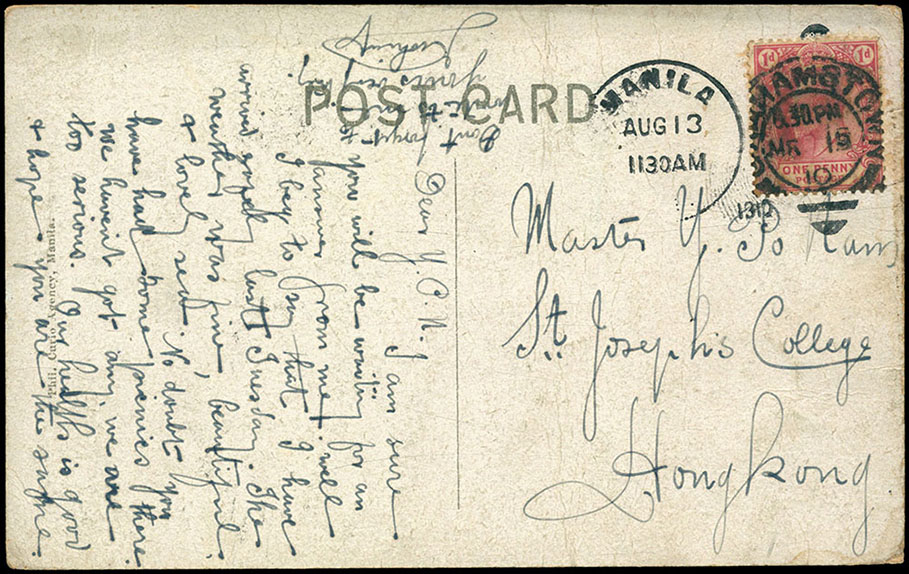 POST CARD
MANILA
AUG 13
1130 AM
1912
1d 1d
ONE PENNY
6.30 PM
15
10
Master Y. Po Kam
St. Joseph's College
Hongkong
Dear Y. P. K.
I am sure
you will be waiting for an
answer from me. Well
I beg to say that I have
arrived safely last Tuesday. The
weather was fine, beautiful
& lovely sea. No doubt you
have had some picnics there.
We haven't got any, we are
too serious. Our health is good
& hope you are the same.
Don't forget to
write to me.
Yours very truly,
Phil. Curio Agency, Manila.